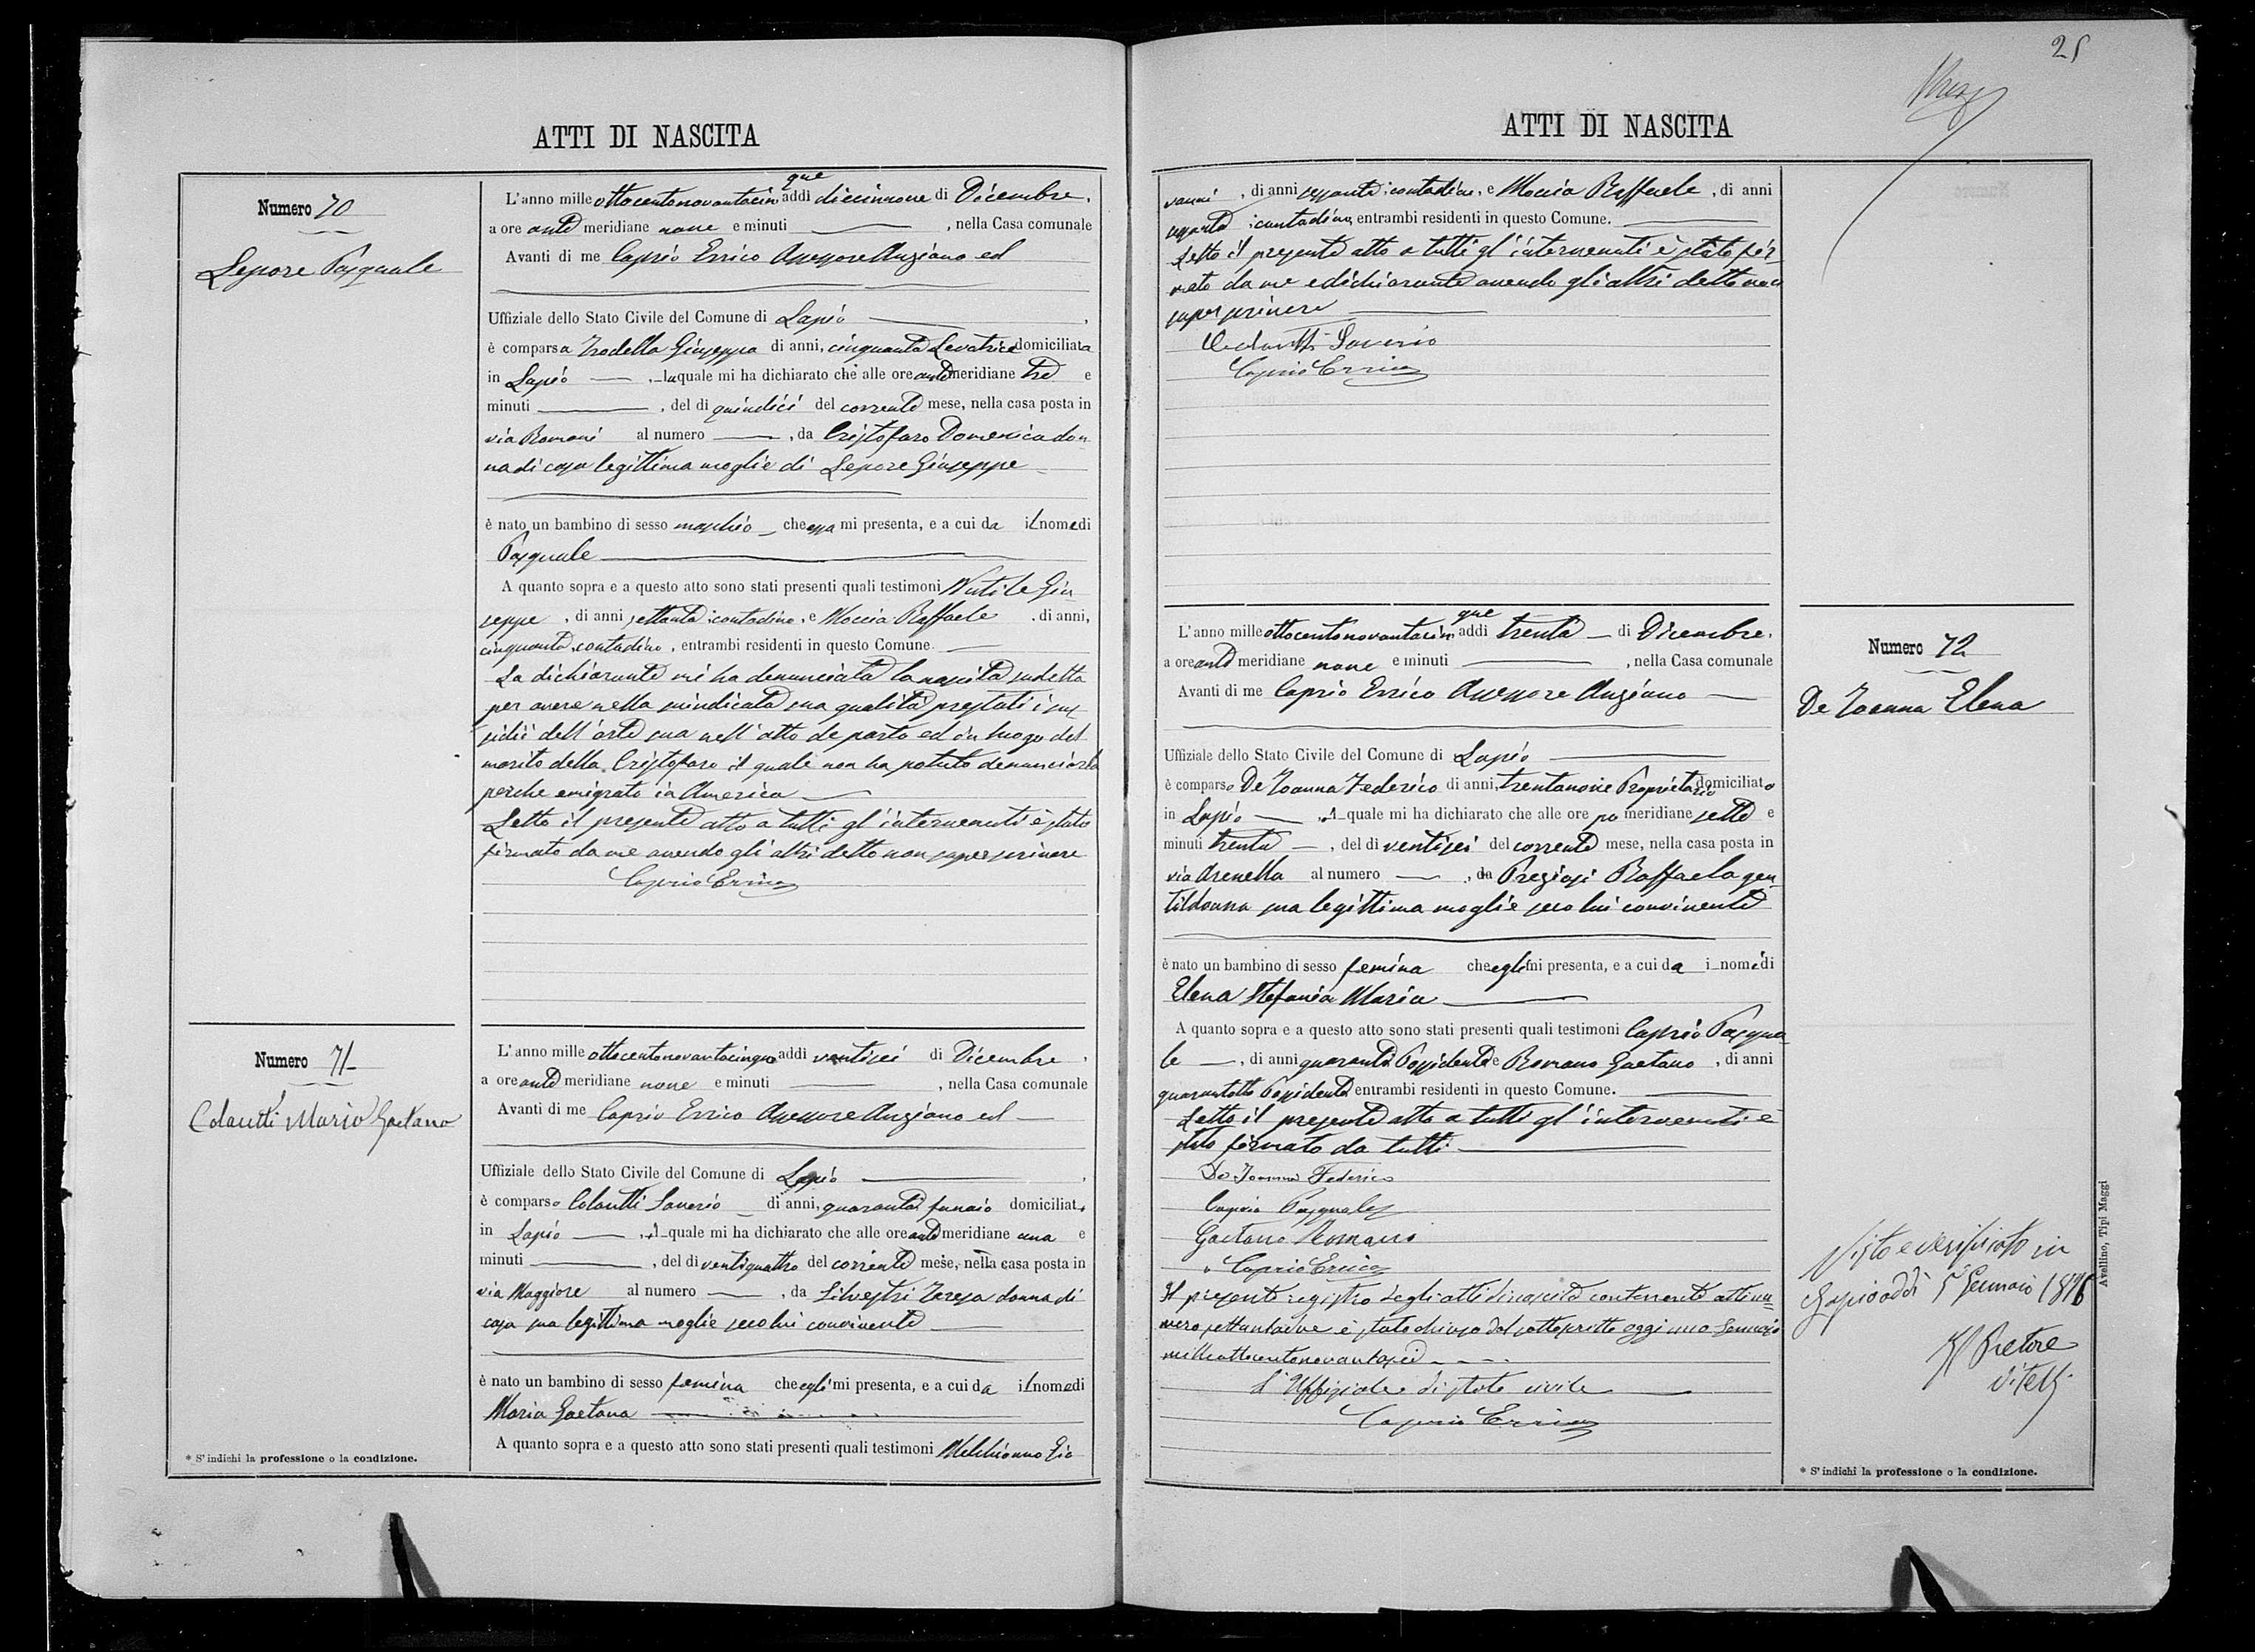 ATTI DI NASCITA
Numero 70
Lepore Pasquale
L'anno mille ottocentonovantacinque addì diciannove di Dicembre,
a ore ante meridiane nove e minuti , nella Casa comunale
Avanti di me Caprio Errico Assessore Anziano ed
Uffiziale dello Stato Civile del Comune di Lapio
è comparsa Trodella Giuseppa di anni, cinquanta Levatrice domiciliata
in Lapio , la quale mi ha dichiarato che alle ore ante meridiane tre e
minuti , del dì quindici del corrente mese, nella casa posta in
via Romani al numero , da Cristofaro Domenica don
na di casa legittima moglie di Lepore Giuseppe
è nato un bambino di sesso maschio che essa mi presenta, e a cui da il nome di
Pasquale
A quanto sopra e a questo atto sono stati presenti quali testimoni Nutile Giu
seppe , di anni settanta, contadino, e Moccia Raffaele , di anni,
cinquanta, contadino, entrambi residenti in questo Comune.
La dichiarante mi ha denunciata la nascita sudetta
per avere nella suindicata sua qualità prestati i sus
sidii dell'arte sua nell'atto de parto ed in luogo del
marito della Cristofaro il quale non ha potuto denunciarla
perche emigrato in America
Letto il presente atto a tutti gl'intervenuti è stato
firmato da me avendo gli altri detto non saper scrivere
Caprio Errico
Numero 71
Colantti Maria Gaetana
L'anno mille ottocentonovantacinque addì ventisei di Dicembre,
a ore ante meridiane nove e minuti , nella Casa comunale
Avanti di me Caprio Errico Assessore Anziano ed
Uffiziale dello Stato Civile del Comune di Lapio
è comparso Colantti Saverio di anni, quaranta funaio domiciliato
in Lapio , il quale mi ha dichiarato che alle ore ante meridiane una e
minuti , del dì ventiquattro del corrente mese, nella casa posta in
via Maggiore al numero , da Silvestri Teresa donna di
casa sua legittima moglie seco lui convivente
è nato un bambino di sesso femina che egli mi presenta, e a cui da il nome di
Maria Gaetana
A quanto sopra e a questo atto sono stati presenti quali testimoni Melchionno Gio
* S'indichi la professione o la condizione.
25
ATTI DI NASCITA
vanni , di anni sessanta, contadino, e Moccia Raffaele , di anni
contadino, entrambi residenti in questo Comune.
Letto il presente atto a tutti gl'intervenuti è stato fir
mato da me e dichiarante avendo gli altri detto non
saper scrivere
Saverio
Caprio Errico
Numero 72
De Ioanna Elena
L'anno mille ottocentonovantacinque addì trenta di Dicembre,
a ore ante meridiane nove e minuti , nella Casa comunale
Avanti di me Caprio Errico Assessore Anziano
Uffiziale dello Stato Civile del Comune di Lapio
è comparso De Ioanna Federico di anni, trentanove Proprietario domiciliato
in Lapio , il quale mi ha dichiarato che alle ore po meridiane sette e
minuti trenta , del dì ventisei del corrente mese, nella casa posta in
via Arenella al numero , da Preziosi Raffaela gen
tildonna sua legittima moglie seco lui convivente
è nato un bambino di sesso femina che egli mi presenta, e a cui da i nome di
Elena Stefania Maria
A quanto sopra e a questo atto sono stati presenti quali testimoni Caprio Pasqua
le , di anni quaranta Possidente e Romano Gaetano , di anni
quarantotto Possidente entrambi residenti in questo Comune.
Letto il presente atto a tutti gl'intervenuti è
stato firmato da tutti
De Ioanna Federico
Caprio Pasquale
Gaetano Romano
Caprio Errico
Il presente registro degli atti di nascita contenente atti nu
mero settantadue è stato chiuso dal sottoscritto oggi uno Gennaio
milleottocentonovantasei
L'Uffiziale di stato civile
Caprio Errico
Visto e verificato in
Lapio addì 5 Gennaio 1896
Il Pretore
Vitelli
* S'indichi la professione o la condizione.
Avellino, Tipi Maggi